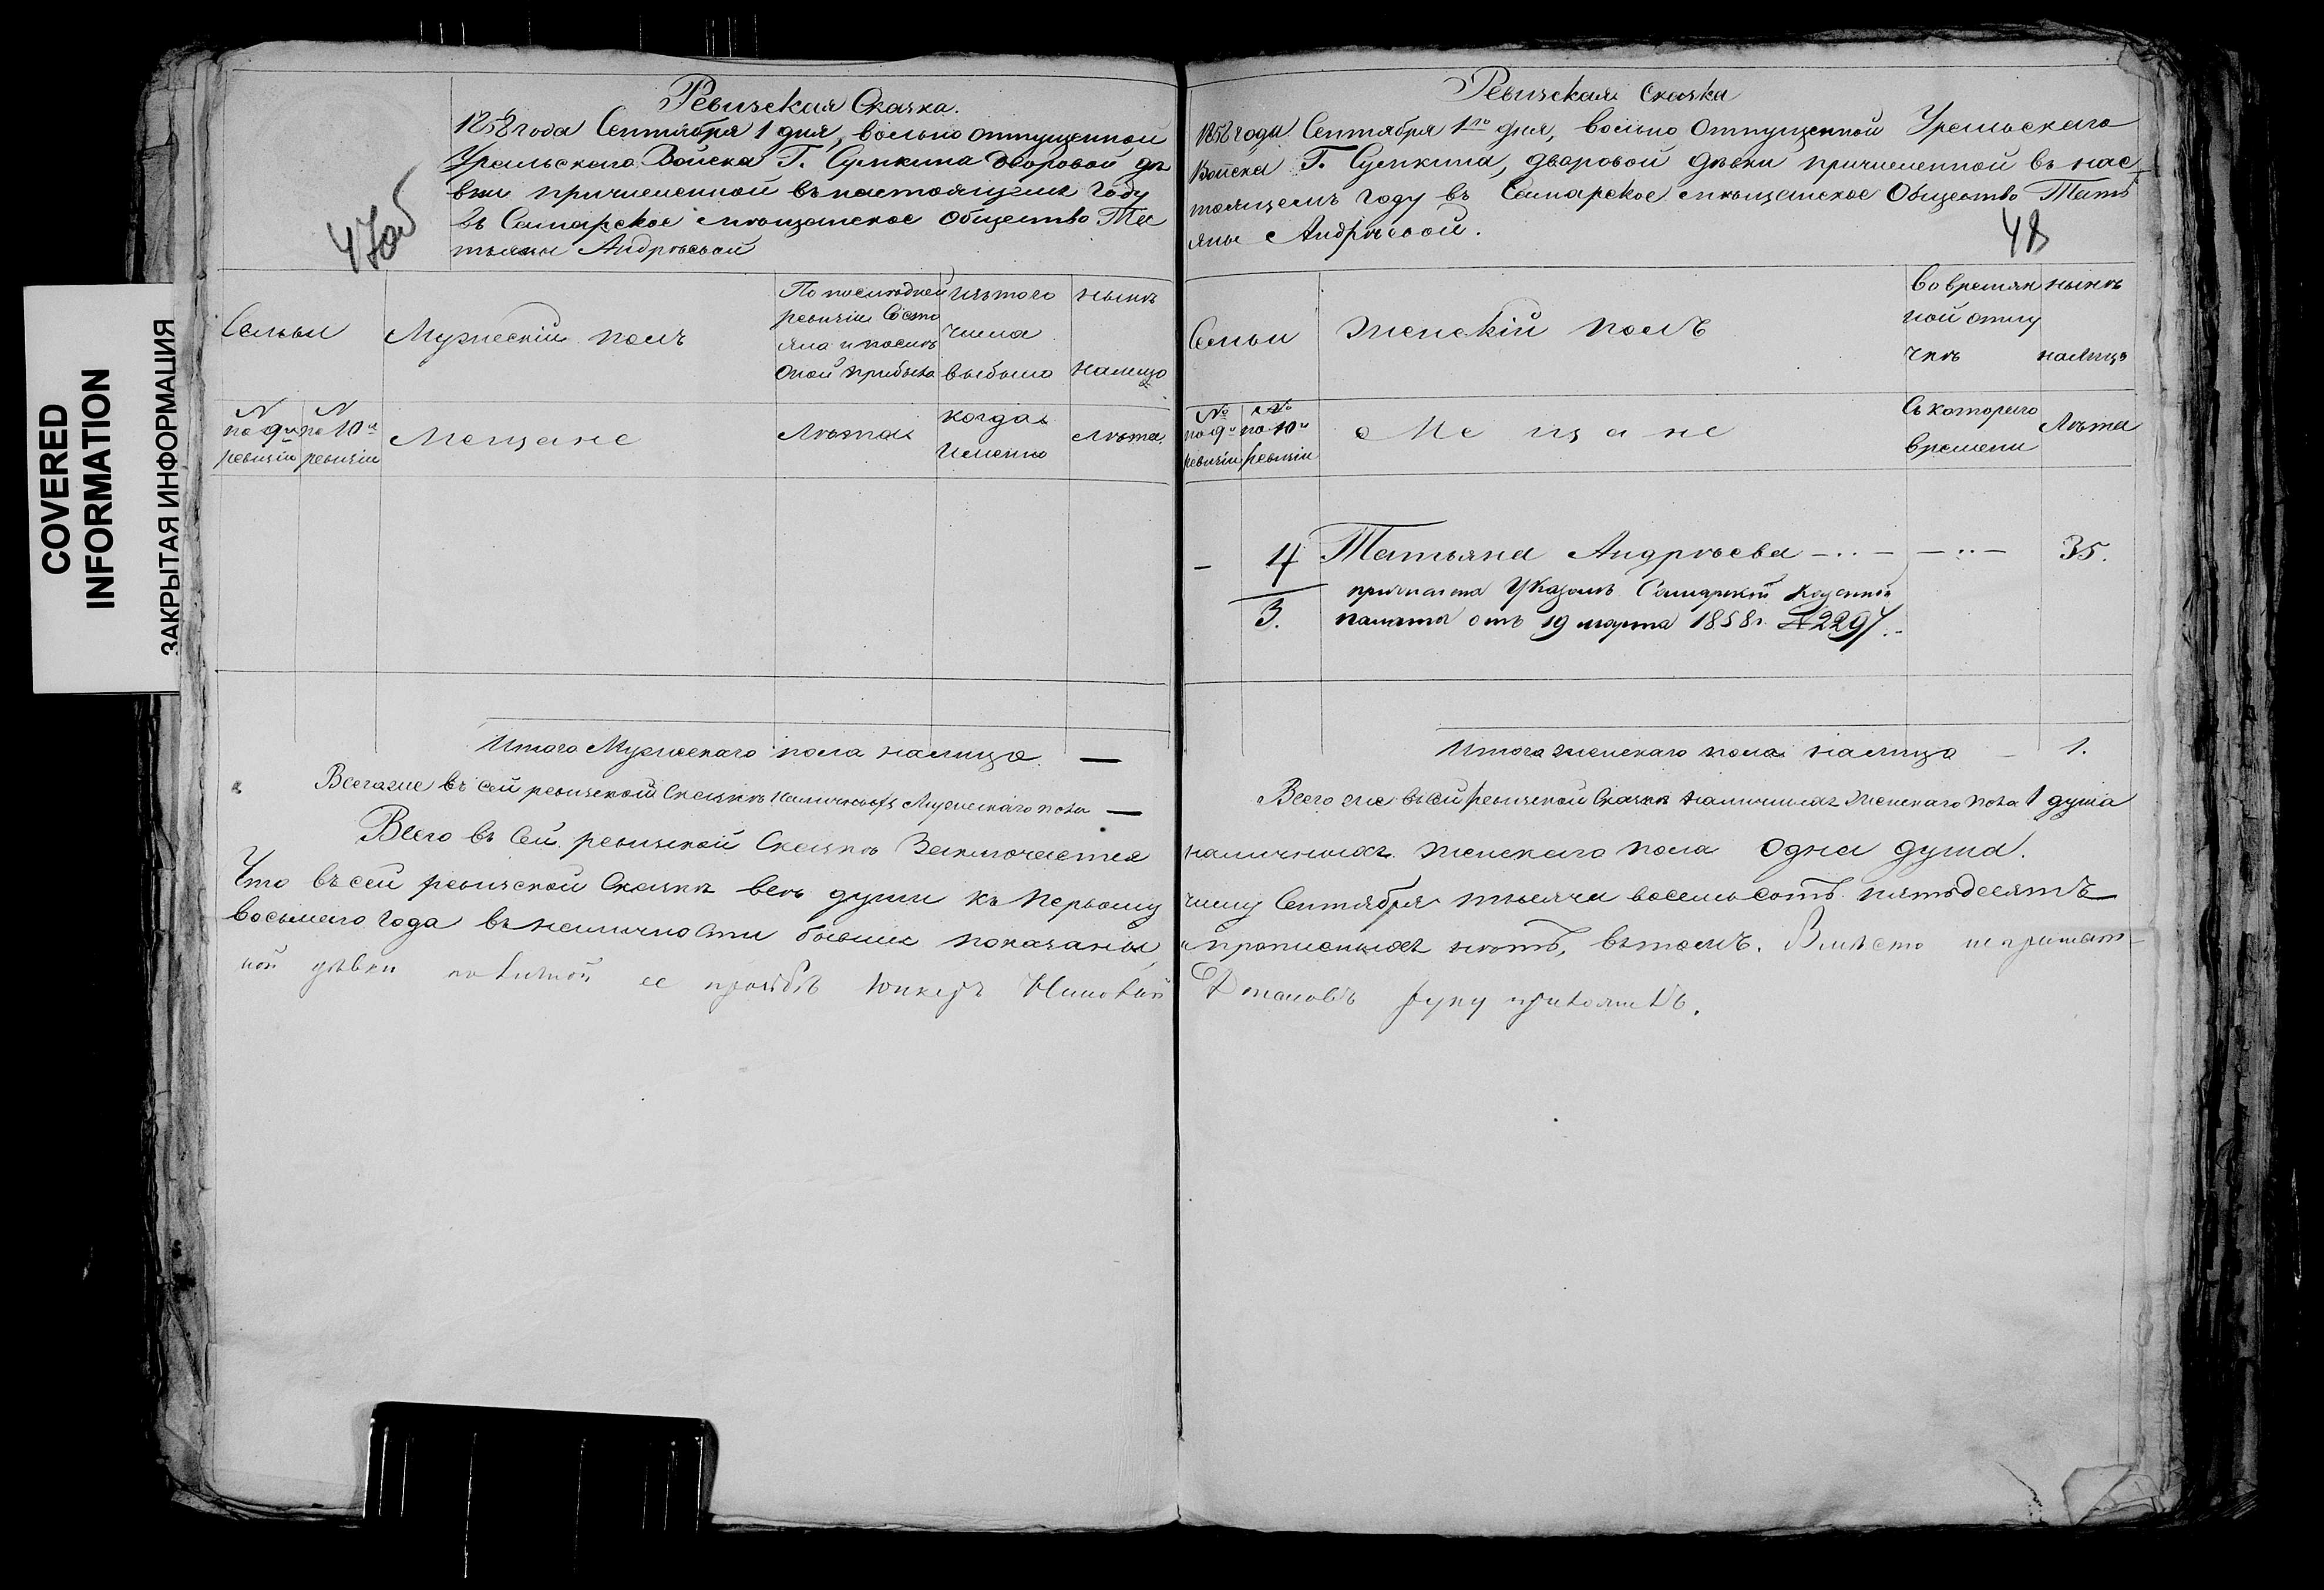 COVERED
INFORMATION
ЗАКРЫТАЯ ИНФОРМАЦИЯ
47об
Ревизская Сказка.
1858 года Сентября 1 дня, вольно отпущенной
Уральскаго Войска Г. Сумкина дворовой дѣ
вки причисленной въ настоящемъ году
въ Самарское мѣщанское общество Та
тьяны Андрѣевой
Семьи
Мужескій полъ
По послѣдней
ревизіи Состо
яло и послѣ
оной прибыло
изъ того
числа
выбыло
нынѣ
налицо
N по 9й ревизіи
N по 10й ревизіи
Мещане
Лѣта
когда
Именно
Лѣта
Итого Мужескаго пола налицо —
Всего же въ сей ревизской Сказкѣ наличныхъ Мужескаго пола —
Всего въ Сей ревизской Сказкѣ Заключается
Что въ сей ревизской Сказкѣ всѣ души къ первому
восьмаго года въ наличности бывшие показаны,
ной дѣвки по личной ее прозьбѣ Юнкеръ
Ревизская Сказка
48
1858 года Сентября 1го дня, вольно Отпущенной Уральскаго
Войска Г. Сумкина, дворовой дѣвки причисленной въ нас
тоящемъ году въ Самарское мѣщанское Общество Тать
яны Андрѣевой.
Семьи
Женскій полъ
Во времян
ной отлу
чкѣ
нынѣ
налицо
№ по 9й ревизіи
№ по 10й ревизіи
Мещане
Съ котораго
времени
Лѣта
— 4 Татьяна Андрѣева —··— —··— 35.
3.
причислена Указомъ Самарской Казенной
палаты отъ 19 марта 1858 г. № 2297.
Итого женскаго пола налицо — 1.
Всего же въ сей ревизской Сказкѣ наличныхъ женскаго пола 1 душа
наличныхъ женскаго пола Одна душа.
числу Сентября тысяча восемьсотъ пятьдесятъ
и прописныхъ нѣтъ, въ томъ. Вмѣсто неграмот-
руку приложилъ.